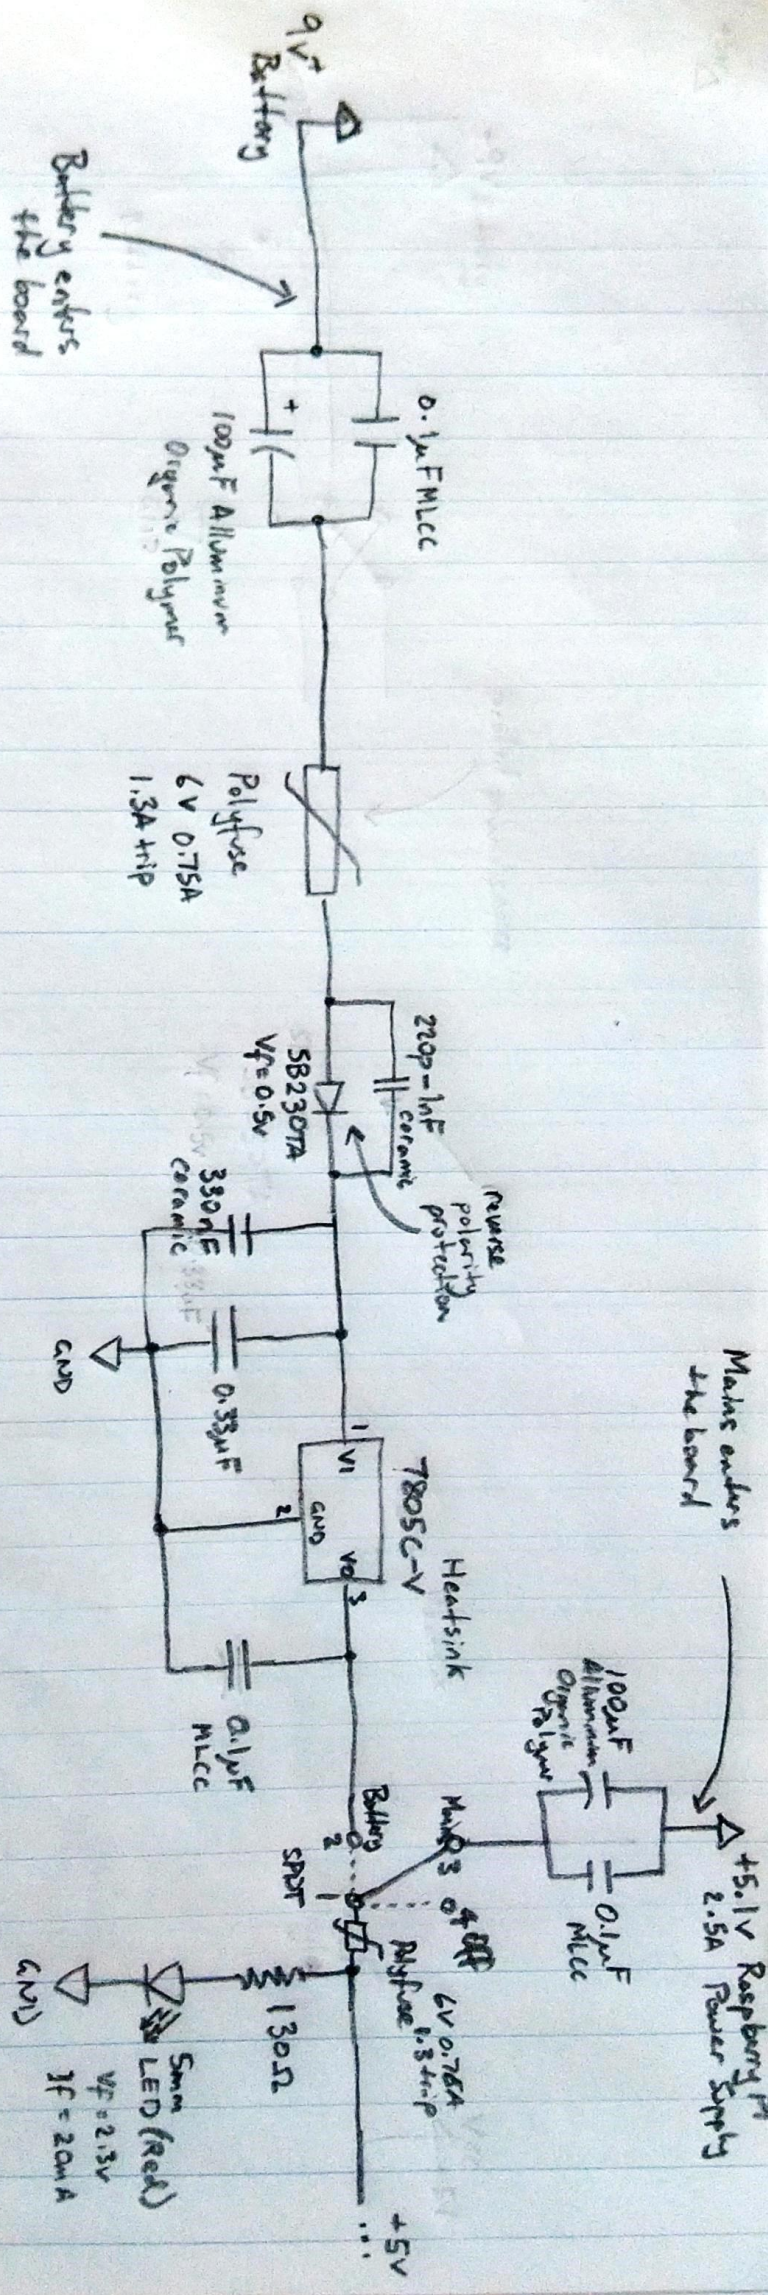 9V+
Battery
Battery enters
the board
0.1µF MLCC
+
100µF Alluminum
Organic Polymer
Polyfuse
6V 0.75A
1.3A trip
220p-1nF
ceramic
SB230TA
Vf=0.5v
reverse
polarity
protection
330nF
ceramic
0.33µF
GND
7805C-V
Heatsink
1
VI
GND
2
VO
3
0.1µF
MLCC
Mains enters
the board
+5.1V Raspberry Pi
2.5A Power Supply
100µF
Alluminium
Organic
Polymer
0.1µF
MLCC
Battery
2
Mains
3
4 OFF
1
Polyfuse
6V 0.75A
1.3 trip
130Ω
5mm
LED (Red)
Vf=2.3v
If=20mA
GND
+5V
...